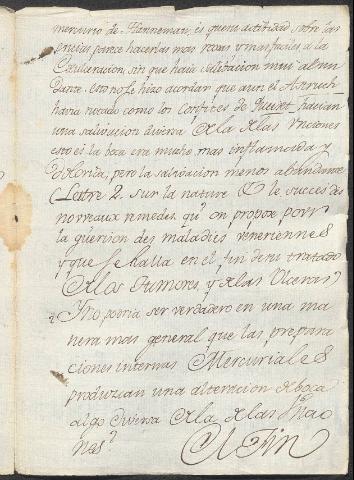 mercurio de Hanneman, es que su actividad sobre las
encias parece hacerlas mas rojas y mas faciles a la
exulceracion, sin que haia salibacion mui abun
dante. esto me hizo acordar que aun el Astruch
havia notado como los confites de Keiset hacian
una salivacion diversa de la de las Unciones
esto es la boca era mucho mas inflamada y
dolorida, pero la salivacion menos abundante
(Lettre 2. sur la nature & le succes des
nouveaux remedes. qu'on propose pour
la guerison des maladies veneriennes
y que se halla en el fin de su tratado
de los tumores, y de las Ulceras)
¿ Y no podria ser verdadero en una ma
nera mas general que las prepara
ciones internas Mercuriales
produzcan una alteracion de boca
algo diversa de la de las Uncio
nes?
El Fin